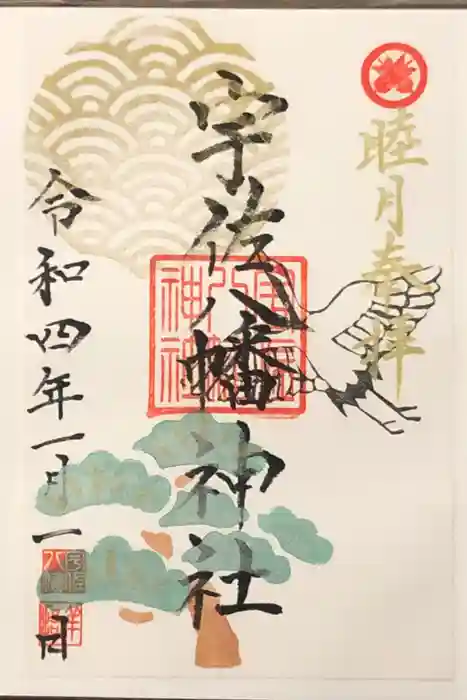 睦月奉拝
宇佐八幡神社
令和四年一月一日